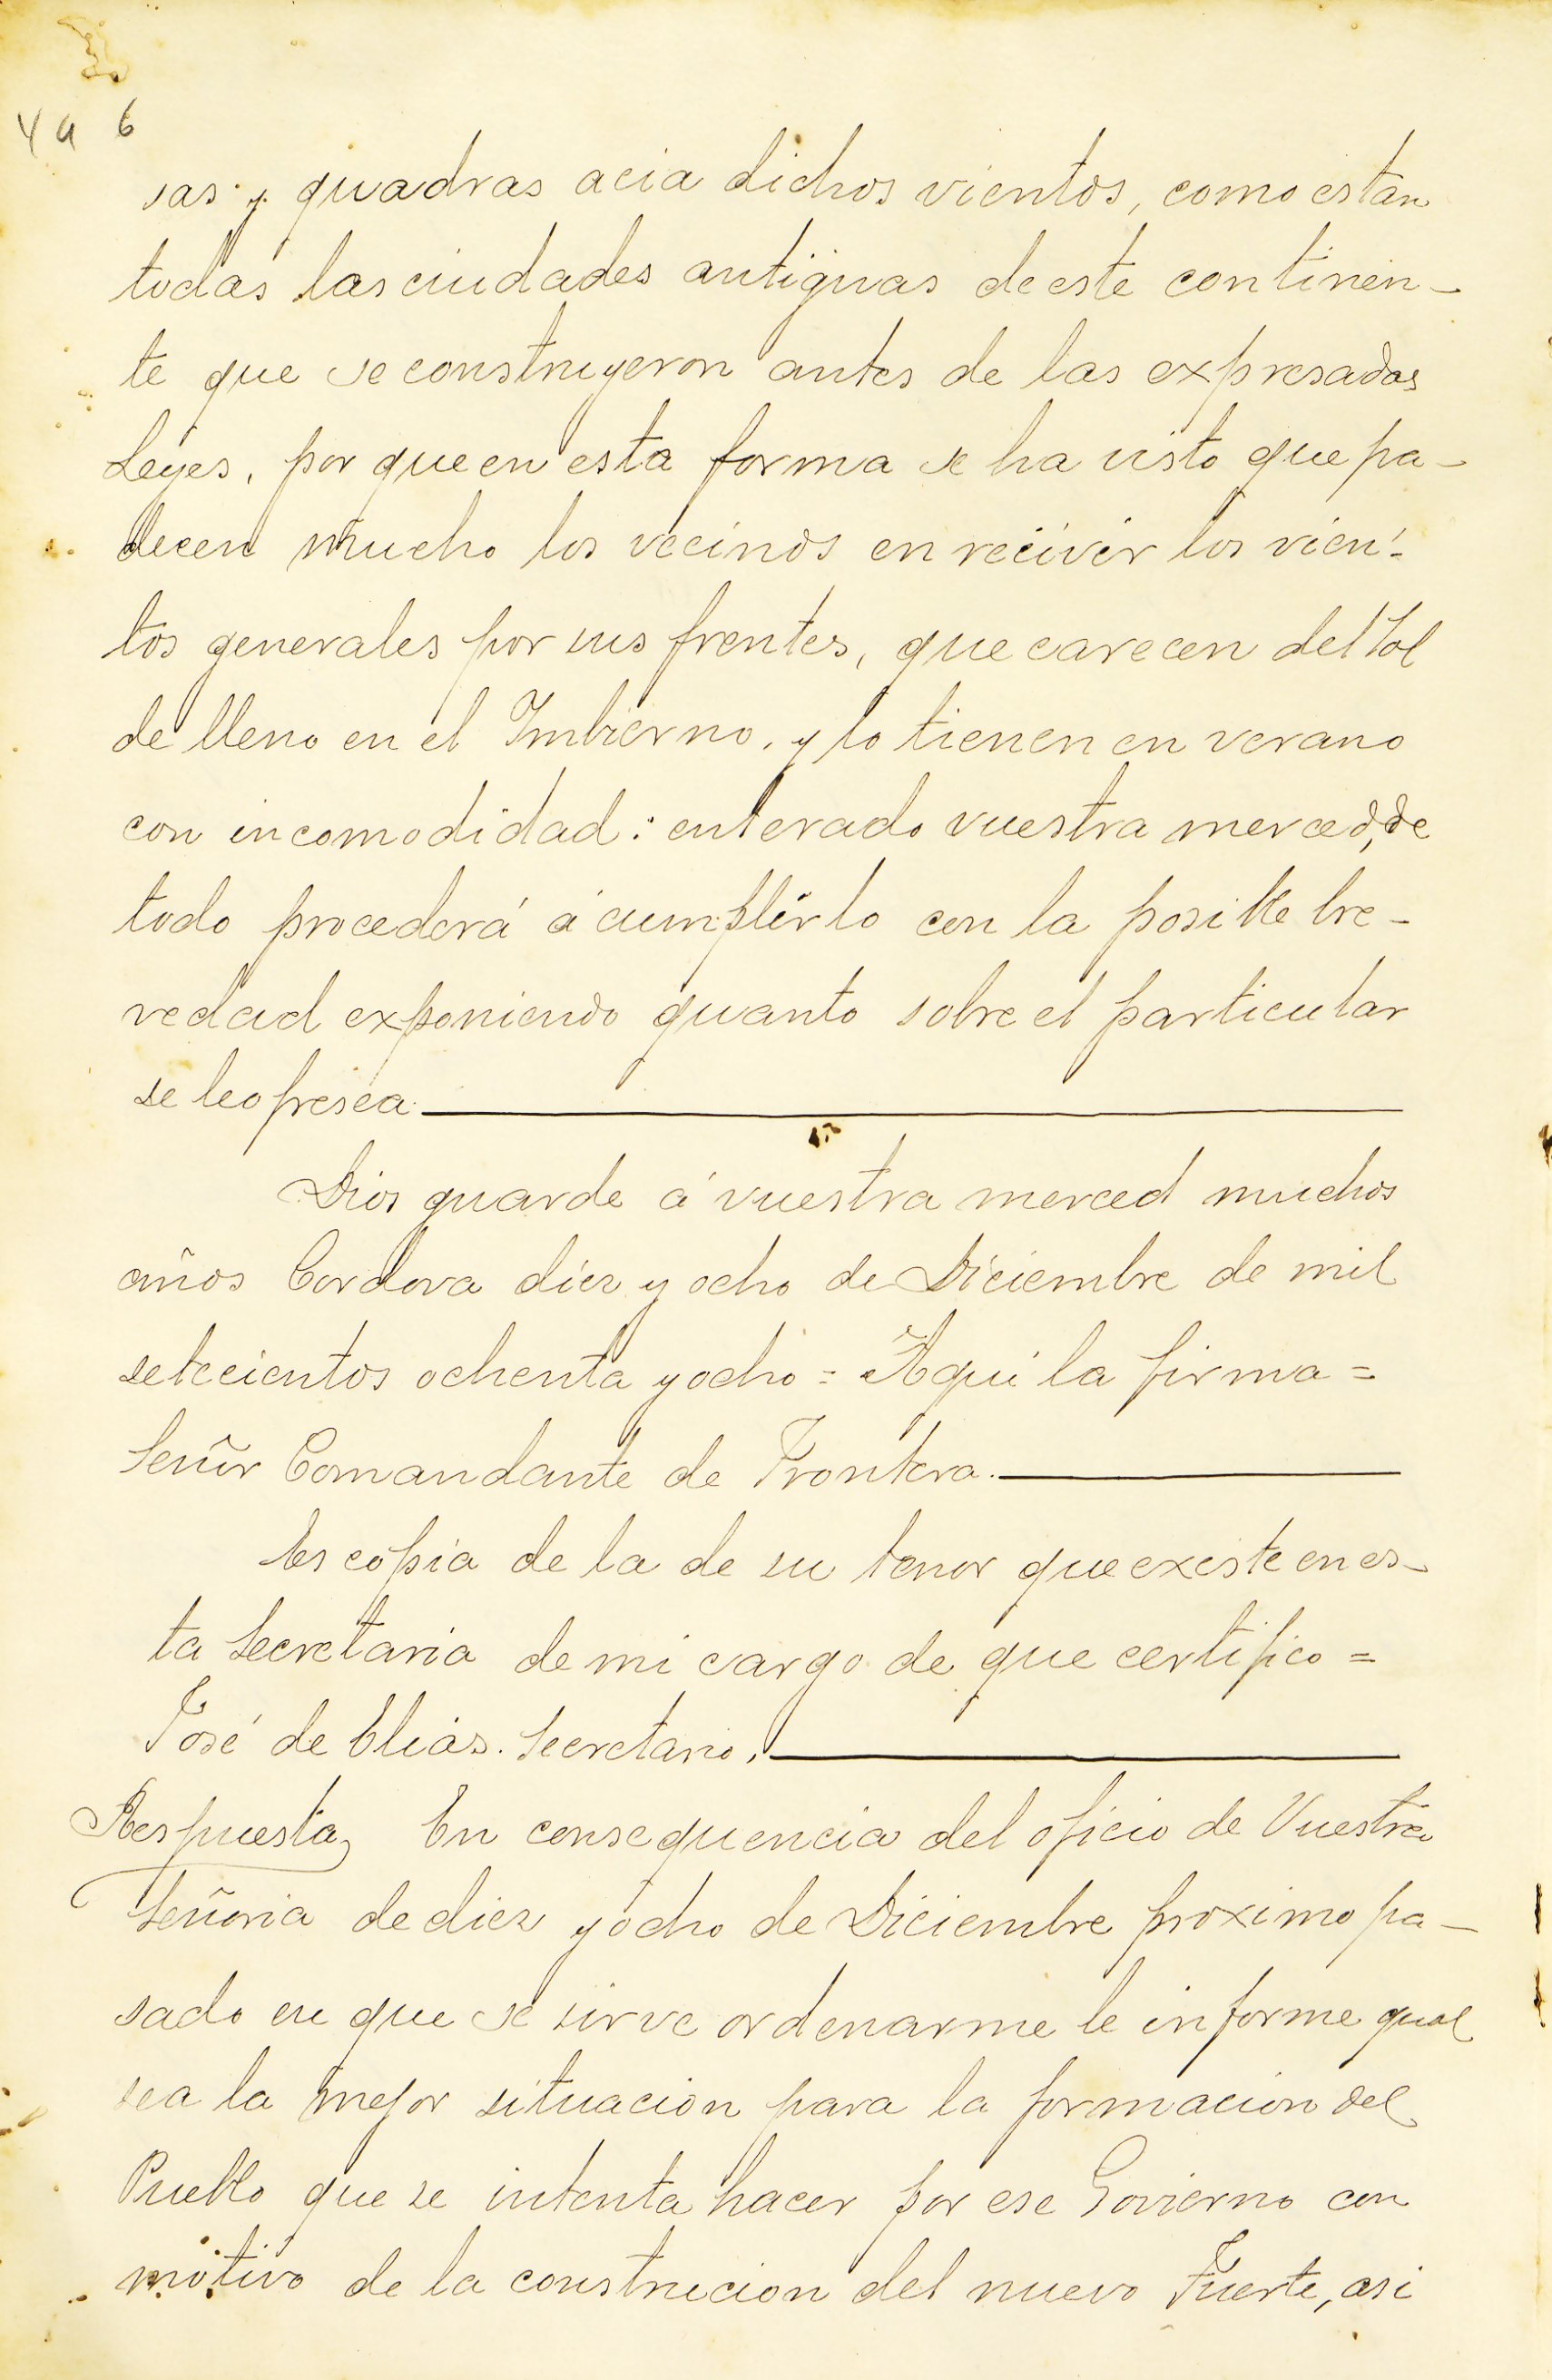 4a 6
sas y quadras acia dichos vientos, como estan
todas las ciudades antiguas de este continen-
te que se construyeron antes de las expresadas
Leyes, por que en esta forma se ha visto que pa-
decen mucho los vecinos en recivir los vien-
tos generales por sus frentes, que carecen del Sol
de lleno en el Imbierno, y lo tienen en verano
con incomodidad: enterado vuestra merced, de
todo procederá á cumplirlo con la posible bre-
vedad exponiendo quanto sobre el particular
se leofresca
Dios guarde á vuestra merced muchos
años Cordova diez y ocho de Diciembre de mil
setecientos ochenta y ocho = Aqui la firma =
Señor Comandante de Frontera.
Es copia de la de su tenor que existe en es-
ta Secretaria de mi cargo de que certifico =
José de Elias. Secretario,
Respuesta, En consequencia del oficio de Vuestra
Señoria de diez y ocho de Diciembre proximo pa-
sado en que se sirve ordenarme le informe qual
sea la mejor situacion para la formacion del
Pueblo que se intenta hacer por ese Govierno con
motivo de la construcion del nuevo Fuerte, asi